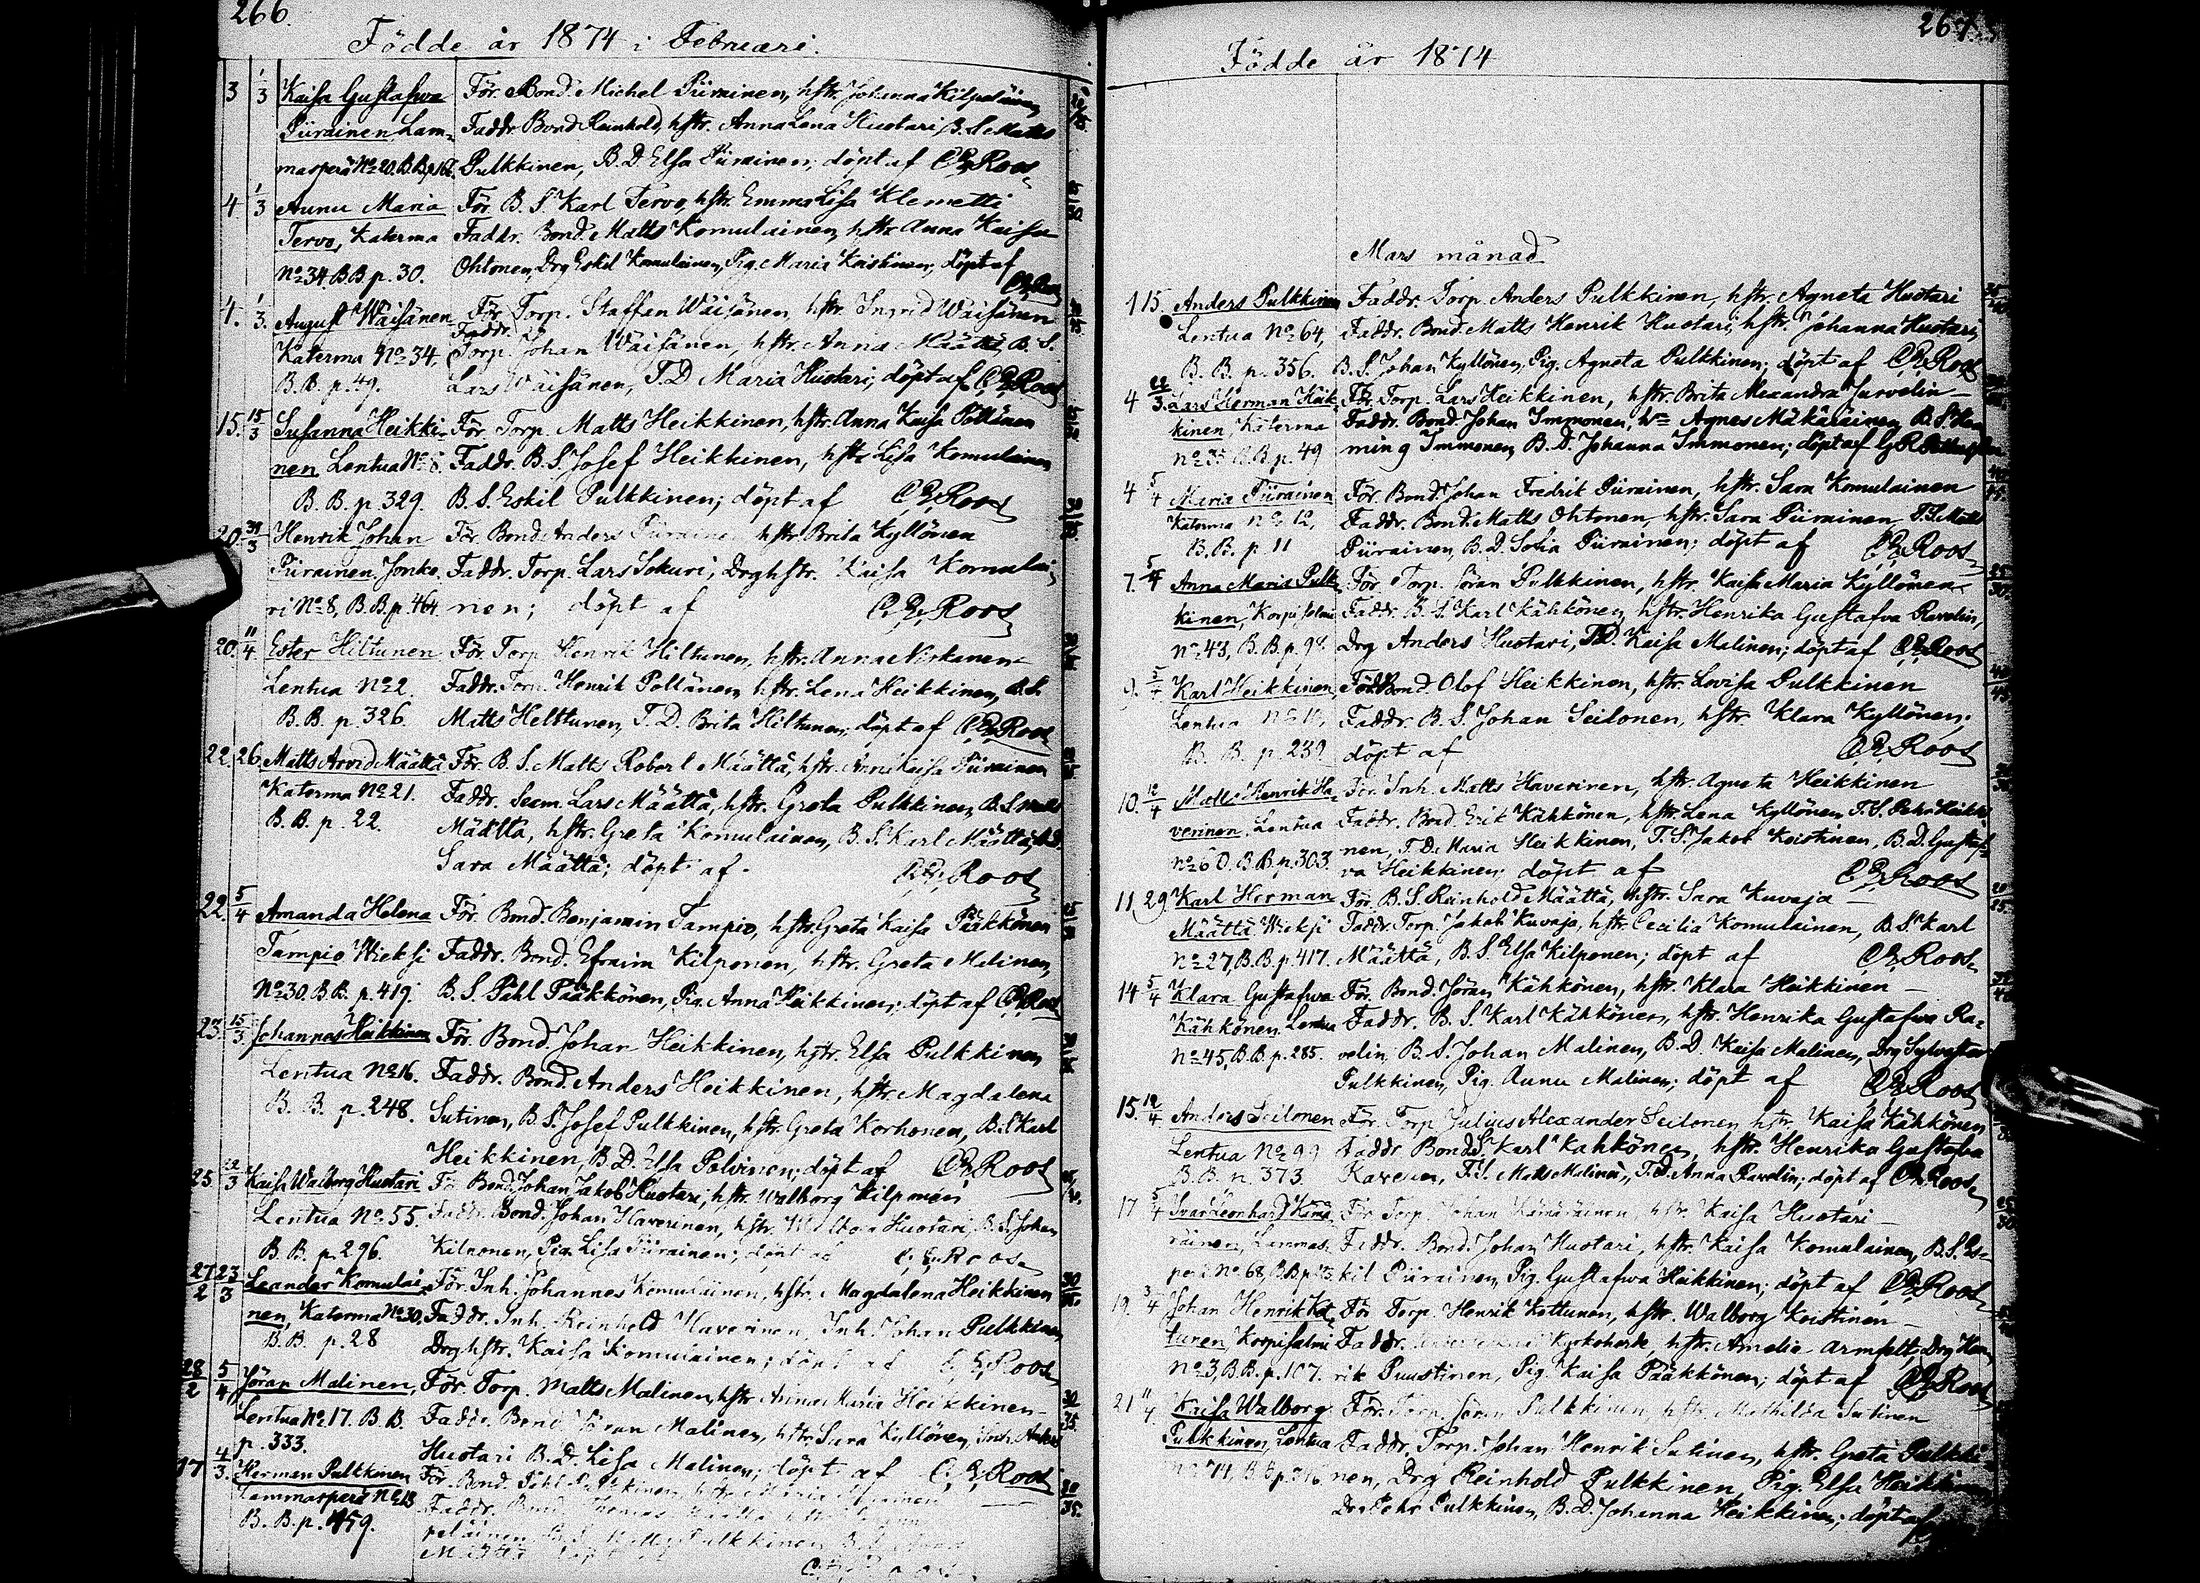 266.
Födde år 1874 i Februari.
3 1/3 Kaisa Gustafwa För. Bond. Michel Piirainen, hstr. Johanna Kilpeläinen,
Piirainen Lam- Faddr. Bond. Reinhold, hstr. Anna Lena Huotari, B.S. Matts
masperä No 20. B.B.p. Pulkkinen, B.D. Elsa Piirainen; döpt af C.E. Roos
4 1/3 Aunu Maria För. B.S. Karl Tervo, hstr. Emma Lisa Klemetti
Tervo, Katerma Faddr. Bond. Matts Komulainen, hstr. Anna Kaisa
No 34. B.B. p. 30. Ohtonen, Drg Eskil Komulainen, Pig. Maria Koistinen; döpt af
C.E. Roos
4. 1/3. August Wäisänen För. Torp. Staffan Wäisänen, hstr. Ingrid Wäisänen
Faddr.
Katerma No 34, Torp. Johan Wäisänen, hstr. Anna Määttä, B.S.
B.B. p. 49. Lars Wäisänen, T.D. Maria Huotari; döpt af C.E. Roos
15. 15/3 Susanna Heikki- För. Torp. Matts Heikkinen, hstr. Anna Kaisa Pöllänen
nen Lentua No 8. Faddr. B.S. Josef Heikkinen, hstr. Lisa Komulainen
B.B. p. 329. B.S. Eskil Pulkkinen; döpt af C.E. Roos
20. 30/3 Henrik Johan För. Bond. Anders Piirainen hstr. Brita Kyllönen
Piirainen. Jonke- Faddr. Torp. Lars Sokuri, Drghstr. Kaisa Komulai-
ri No 8, B.B.p. 464 nen; döpt af C.E. Roos
20. 11/4 Ester Hiltunen För. Torp Henrik Hiltunen, hstr. Anna Nirkanen
Lentua No 2. Faddr. Torp. Henrik Pöllänen, hstr. Lena Heikkinen, B.S.
B.B. p. 326. Matts Helttunen, T.D. Brita Hiltunen; döpt af C.E. Roos
22. 26 Matts Arvid Määttä För. B.S. Matts Robert Määttä, hstr. Anna Kaisa Piirainen
Katerma No 21. Faddr. Lars Määttä, hstr. Greta Pulkkinen, B.S. Matts
B.B. p. 22. Määttä, hstr. Greta Komulainen, B.S. Karl Määttä,
Sara Määttä; döpt af C.E. Roos
22. 5/4 Amanda Helena För. Bond. Benjamin Tampio, hstr. Greta Kaisa Pääkkönen
Tampio Wieksi Faddr. Bond. Efraim Kilponen, hstr. Greta Malinen,
No 30. B.B. p. 419. B.S. Påhl Pääkkönen, Pig. Anna Heikkinen; döpt af C.E. Roos
23. 15/3. Johannes Heikkinen För. Bond. Johan Heikkinen, hstr. Elsa Pulkkinen
Lentua No 16. Faddr. Bond. Anders Heikkinen, hstr Magdalena
B.B. p. 248. Sutinen, B.S. Josef Pulkkinen, hstr. Greta Korhonen, B.S. Karl
Heikkinen, B.D. Elsa Polvinen; döpt af C.E. Roos
25 22/3 Kaisa Walborg Huotari För Bond. Johan Jakob Huotari, hstr. Walborg Kilponen
Lentua No 55. Faddr. Bond. Johan Haverinen, hstr. Huotari, B.S. Johan
B.B. p. 296. Kilponen, Pig. Lisa Piirainen; döpt af C.E. Roos
27/2 23/3 Leander Komulai- För. Inh. Johannes Komulainen, hstr. Magdalena Heikkinen
nen, Katerma No 30, Faddr. Inh. Reinhold Haverinen, Inh. Johan Pulkkinen
B.B. p. 28 Drghstr. Kaisa Komulainen; döpt af C.E. Roos
28/2 5/4 Jöran Malinen, För. Torp. Matts Malinen, hstr. Anna Maria Heikkinen
Lentua No 17. B.B. Faddr. Bond. Jöran Malinen, hstr. Sara Kyllönen, Inh. Anders
p. 333. Huotari B.D. Lisa Malinen; döpt af C.E. Roos
17 4/3. Herman Pulkkinen För. Bond. Påhl Pulkkinen, hstr. Maria
Lammasperä No 13 Faddr. Bond.
B.B.p. 459.
267.
Födde år 1874
Mars månad
1 15. Anders Pulkkinen Faddr. Torp. Anders Pulkkinen, hstr. Agneta Huotari
Lentua No 64, Faddr. Bond. Matts Henrik Huotari, hstr. Johanna Huotari,
B.B. p. 356. B.S. Johan Kyllönen, Pig. Agneta Pulkkinen; döpt af C.E. Roos
4 22/3. Lars Herman Heik- För. Torp. Lars Heikkinen, hstr. Brita Alexandra Jurvelin
kinen, Katerma Faddr. Bond. Johan Immonen, Agnes Mäkäräinen, B.S. Hen-
No 35 B.B.p. 49 ming Immonen, B.D. Johanna Immonen; döpt af
4 5/4 Maria Piirainen För. Bond. Johan Fredrik Piirainen, hstr. Sara Komulainen
Katerma No 12, Faddr. Bond. Matts Ohtonen, hstr. Sara Piirainen, T.S. Matts
B.B. p. 11 Piirainen, B.D. Sofia Piirainen; döpt af C.E. Roos
7. 5/4 Anna Maria Pulk- För. Torp. Jöran Pulkkinen, hstr. Kaisa Maria Kyllönen
kinen, Korpisalmi Faddr. B.S. Karl Kähkönen, hstr. Henrika Gustafva Ravelin,
No 43, B.B.p. 98. Drg Anders Huotari, T.D. Kaisa Malinen; döpt af C.E. Roos
9. 5/4 Karl Heikkinen, För. Bond. Olof Heikkinen, hstr. Lovisa Pulkkinen
Lentua No 10, Faddr. B.S. Johan Seilonen, hstr. Klara Kyllönen;
B.B. p. 239 döpt af C.E. Roos
10. 12/4 Matts Henrik Ha- För. Inh. Matts Haverinen, hstr. Agneta Heikkinen
verinen, Lentua Faddr. Bond. Erik Kähkönen, hstr. Lena Kyllönen, T.S. Pehr Heikki-
No 60. B.B.p. 303. nen, T.D. Maria Heikkinen, T.S. Jakob Koistinen, B.D. Gustaf-
va Heikkinen; döpt af C.E. Roos
11. 29. Karl Herman För. B.S. Reinhold Määttä, hstr. Sara Kuvaja
Määttä Wieksi Faddr. Torp. Jakob Kuvaja, hstr. Cecilia Komulainen, B.S. Karl
No 27, B.B.p. 417. Määttä, B.S. Elsa Kilponen; döpt af C.E. Roos
14 5/4 Klara Gustafwa För. Bond. Jöran Kähkönen, hstr. Klara Heikkinen
Kähkönen Lentua Faddr. B.S. Karl Kähkönen, hstr. Henrika Gustafwa Ra-
No 45, B.B.p. 285. velin, B.S. Johan Malinen, B.D. Kaisa Malinen, Drg Sylvester
Pulkkinen, Pig. Aunu Malinen; döpt af C.E. Roos
15. 12/4 Anders Seilonen För. Torp. Julius Alexander Seilonen hstr. Kaisa Kähkönen
Lentua No 99 Faddr Bonds. Karl Kähkönen, hstr. Henrika Gustafva
B.B. p. 373. T.S. Matts Malinen, T.D. Anna Ravelin; döpt af C.E. Roos
17 5/4 Ivar Leonhard Kämä- För. Torp. Johan Kämäräinen, hstr. Kaisa Huotari
räinen, Lammas- Faddr. Bond. Johan Huotari, hstr. Kaisa Komulainen, B.S. Es-
perä No 68, B.B.p. kil Piirainen, Pig. Gustafwa Heikkinen; döpt af C.E. Roos
19. 3/4 Johan Henrik Kot- För. Torp. Henrik Kottunen, hstr. Walborg Koistinen
tunen Korpisalmi Faddr. Kyrkoherde, hstr. Amelie Armfelt, Drg Hen-
No 3, B.B.p. 107. rik Puustinen, Pig. Kaisa Pääkkönen; döpt af C.E. Roos
21 11/4 Kaisa Walborg För. Torp. Jöran Pulkkinen, hstr. Mathilda Sutinen
Pulkkinen, Lentua Faddr. Torp. Johan Henrik Sutinen, hstr. Greta Pulkki-
No 74, B.B.p. nen, Drg Reinhold Pulkkinen, Pig. Elsa Heikkinen
Drg Pehr Pulkkinen, B.D. Johanna Heikkinen; döpt af